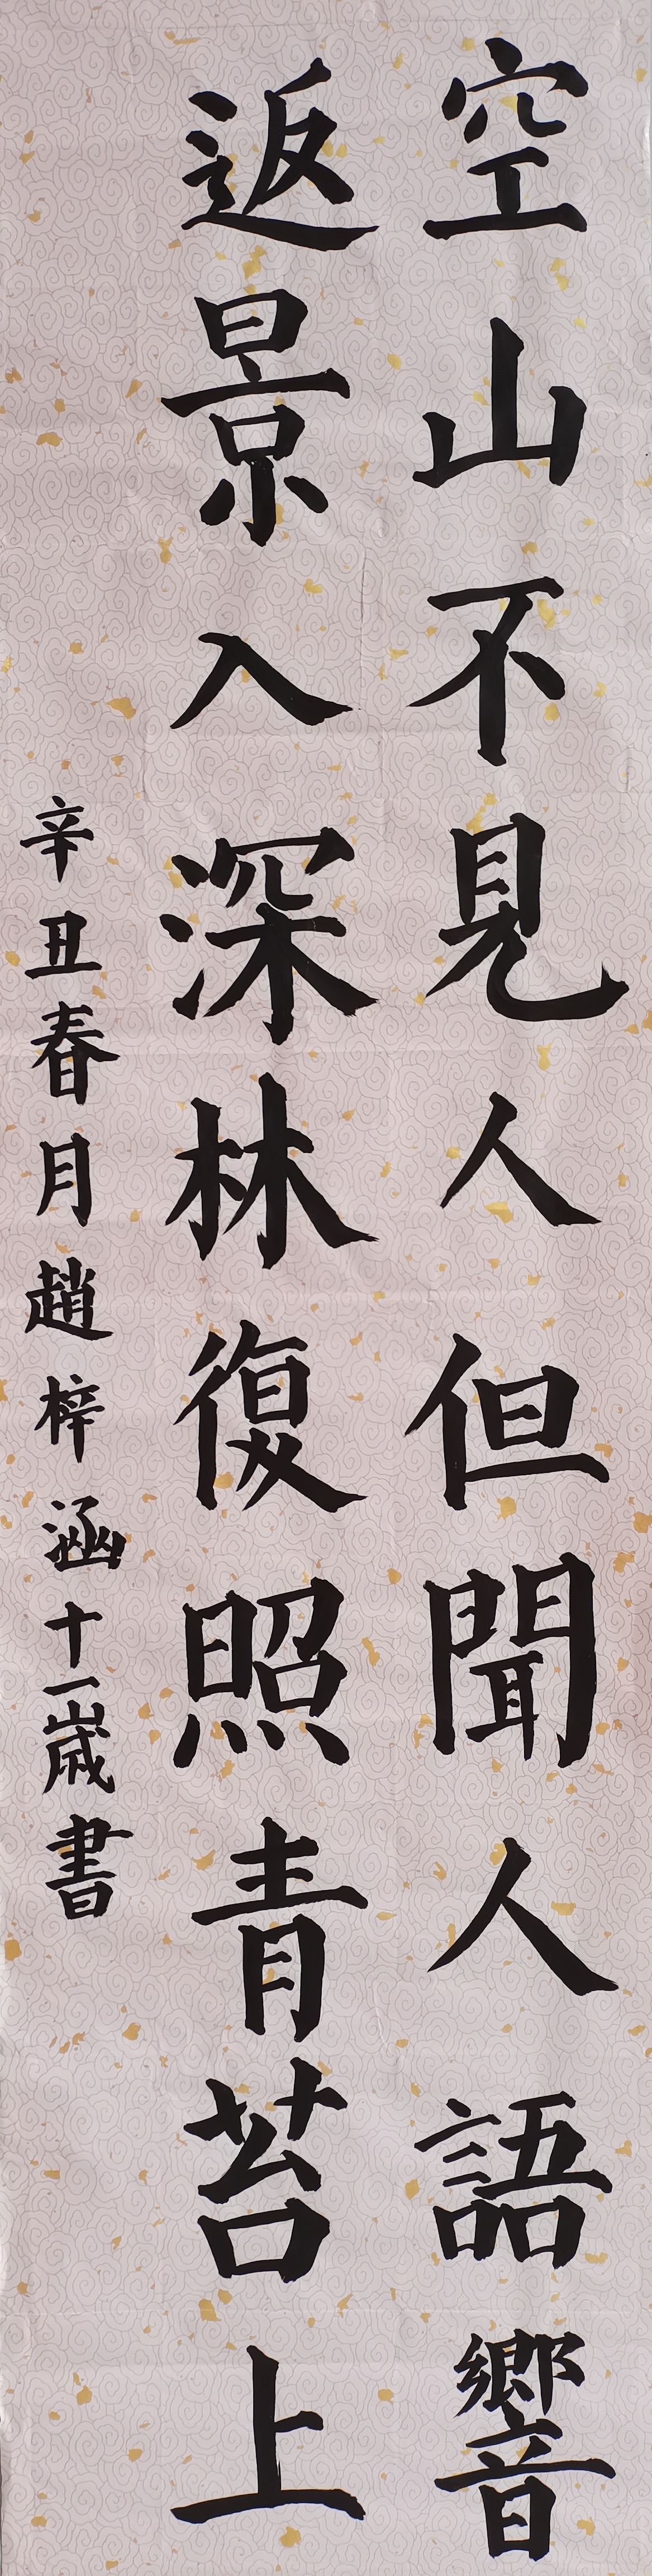 空山不見人但聞人語響
返景入深林復照青苔上
辛丑春月趙梓涵十一歲書